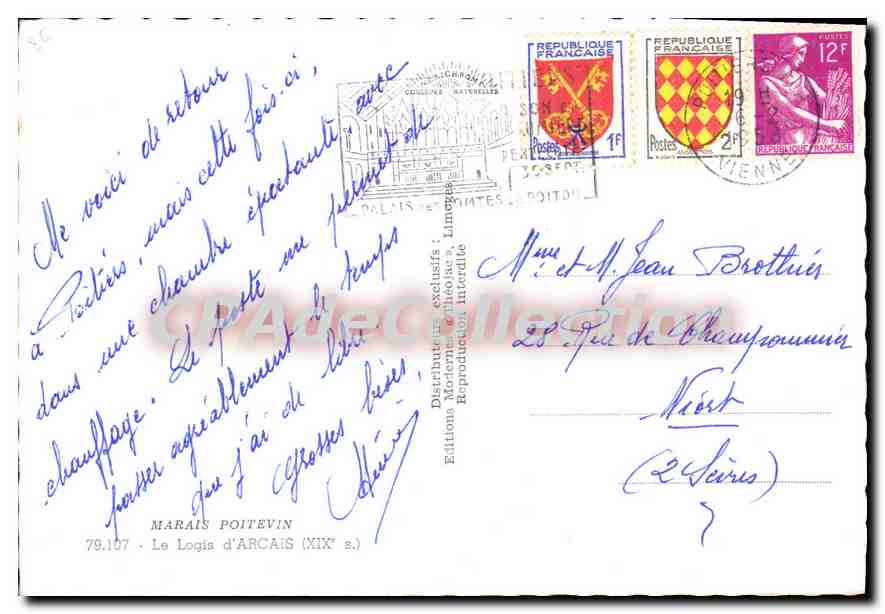 86
Me voici de retour
à Poitiers, mais cette fois-ci,
dans une chambre épatante avec
chauffage. Le poste me permet de
passer agréablement le temps
que j'ai de libre
Grosses bises,
MARAIS POITEVIN
79.107 - Le Logis d'ARÇAIS (XIXe s.)
Distributeurs exclusifs :
Editions Modernes « Théojac », Limoges
Reproduction interdite
COULEURS NATURELLES
PALAIS DES COMTES DE POITOU
SON ET
30 SEPT
REPUBLIQUE
FRANÇAISE
Postes 1F
REPUBLIQUE
FRANÇAISE
Postes 2F
POSTES
12F
REPUBLIQUE FRANÇAISE
POITIERS
19
6
VIENNE
Mme et M. Jean Brothier
28 Rue de Champommier
Niort
(2 Sèvres)
CPAdeCollection